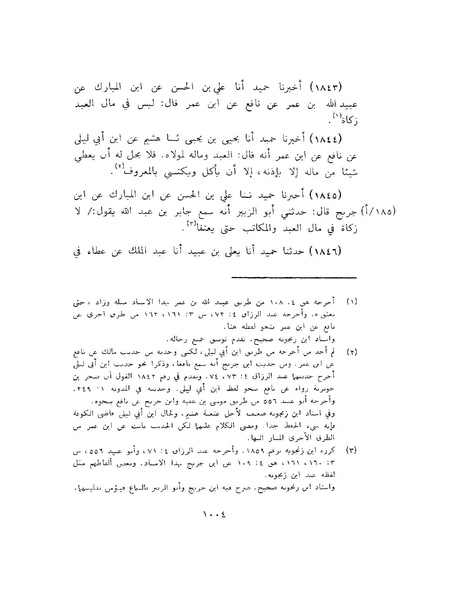 (١٨٤٣) أخبرنا حميد أنا علي بن الحسن عن ابن المبارك عن
عبيد الله بن عمر عن نافع عن ابن عمر قال: ليس في مال العبد
زكاة(١).
(١٨٤٤) أخبرنا حميد أنا يحيى بن يحيى ثنا هشيم عن ابن أبي ليلى
عن نافع عن ابن عمر أنه قال: العبد وماله لمولاه. فلا يحل له أن يعطي
شيئا من ماله إلا بإذنه، إلا أن يأكل ويكتسي بالمعروف(٢).
(١٨٤٥) أخبرنا حميد ثنا علي بن الحسن عن ابن المبارك عن ابن
(١٨٥/أ) جريج قال: حدثني أبو الزبير أنه سمع جابر بن عبد الله يقول:/ لا
زكاة في مال العبد والمكاتب حتى يعتقا(٣).
(١٨٤٦) حدثنا حميد أنا يعلى بن عبيد أنا عبد الملك عن عطاء في
(١) أخرجه هق ٤: ١٠٨ من طريق عبيد الله بن عمر بهذا الاسناد مثله وزاد «حتى
يعتق». وأخرجه عبد الرزاق ٤: ٧٢، ش ٣: ١٦١، ١٦٢ من طرق أخرى عن
نافع عن ابن عمر بنحو لفظه هنا.
واسناد ابن زنجويه صحيح. تقدم توثيق جميع رجاله.
(٢) لم أجد من أخرجه من طريق ابن أبي ليلى، لكني وجدته من حديث مالك عن نافع
عن ابن عمر. ومن حديث ابن جريج أنه سمع نافعا، وذكرا نحو حديث ابن أبي ليلى
أخرج حديثهما عبد الرزاق ٤: ٧٣، ٧٤. وتقدم في رقم ١٨٤٢ القول أن صخر بن
جويرية رواه عن نافع بنحو لفظ ابن أبي ليلى. وحديثه في المدونة ١: ٢٤٩.
وأخرجه أبو عبيد ٥٥٦ من طريق موسى بن عقبة وابن جريج عن نافع بنحوه.
وفي اسناد ابن زنجويه ضعف لأجل عنعنة هشيم، ولحال ابن أبي ليلى قاضي الكوفة
فإنه سيء الحفظ جدا. ومضى الكلام عليهما لكن الحديث ثابت عن ابن عمر من
الطرق الأخرى المشار اليها.
(٣) كرره ابن زنجويه برقم ١٨٥٩. وأخرجه عبد الرزاق ٤: ٧١، وأبو عبيد ٥٥٦، ش
٣: ١٦٠، ١٦١، هق ٤: ١٠٩ عن ابن جريج بهذا الاسناد. وبعض ألفاظهم مثل
لفظه عند ابن زنجويه.
واسناد ابن زنجويه صحيح. صرح فيه ابن جريج وأبو الزبير بالسماع فيؤمن تدليسهما.
١٠٠٤